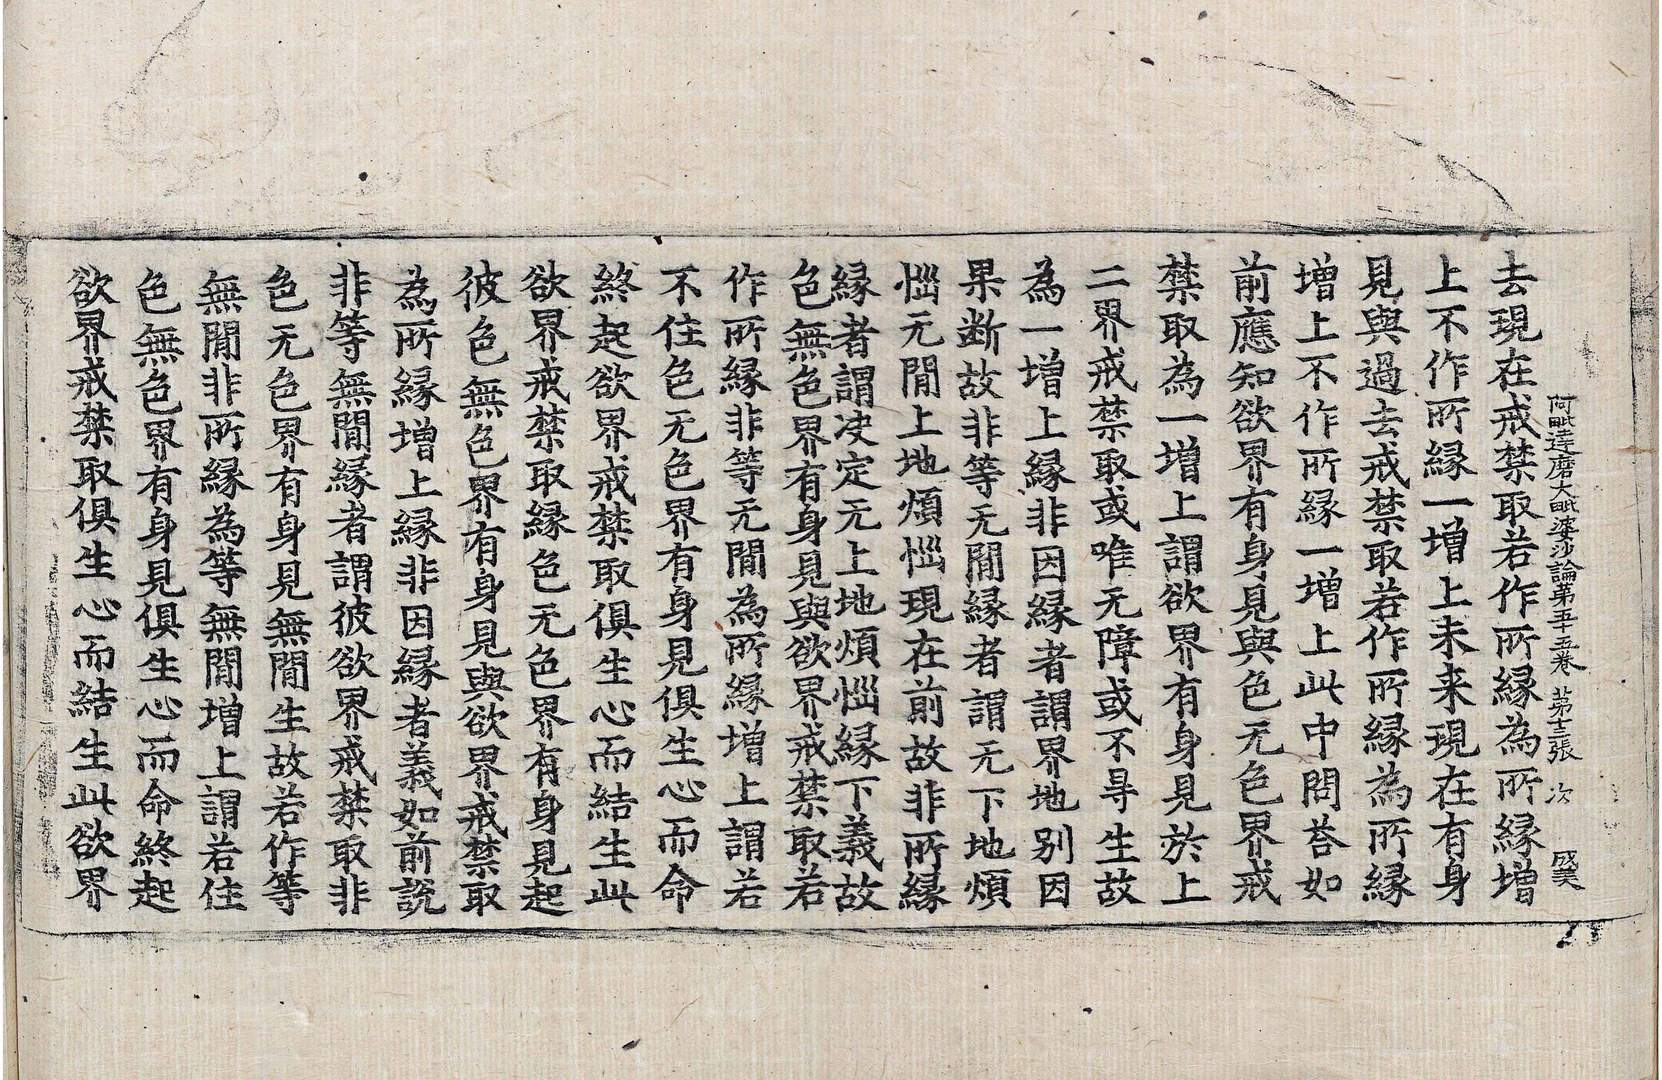 阿毗達磨大毗婆沙論第五十五卷 第十三張 次 成美
去現在戒禁取若作所緣為所緣增
上不作所緣一增上未来現在有身
見與過去戒禁取若作所緣為所緣
增上不作所緣一增上此中問荅如
前應知欲界有身見與色无色界戒
禁取為一增上謂欲界有身見於上
二界戒禁取或唯无障或不㝵生故
為一增上緣非因緣者謂界地别因
果断故非等无間緣者謂无下地煩
惱无間上地煩惱現在前故非所緣
緣者謂决定无上地煩惱緣下義故
色無色界有身見與欲界戒禁取若
作所緣非等无間為所緣增上謂若
不住色无色界有身見俱生心而命
終起欲界戒禁取俱生心而結生此
欲界戒禁取緣色无色界有身見起
彼色無色界有身見與欲界戒禁取
為所緣增上緣非因緣者義如前說
非等無間緣者謂彼欲界戒禁取非
色无色界有身見無間生故若作等
無間非所緣為等無間增上謂若住
色無色界有身見俱生心而命終起
欲界戒禁取俱生心而結生此欲界